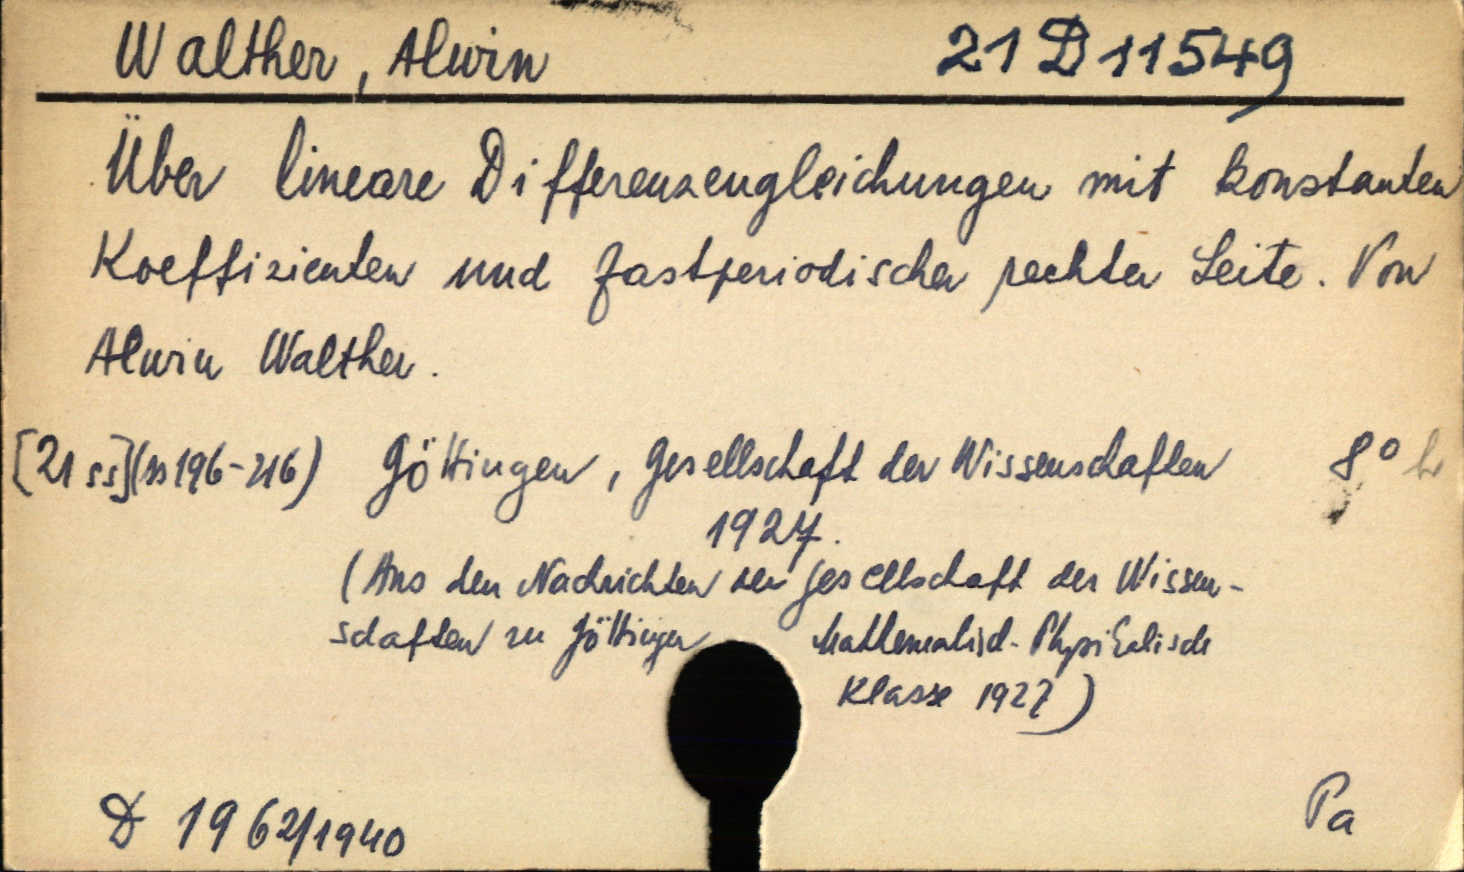 Walther, Alwin 21 D 11549
Über lineare Differenzengleichungen mit konstanten
Koeffizienten und fastperiodischer rechter Seite. Von
Alwin Walther.
[21 ss] (ss 196-216) Göttingen, Gesellschaft der Wissenschaften 8°
1927.
(Aus den Nachrichten der Gesellschaft der Wissen-
schaften zu Göttingen Mathematisch-Physikalische
Klasse 1927)
D 1962/1940 Pa